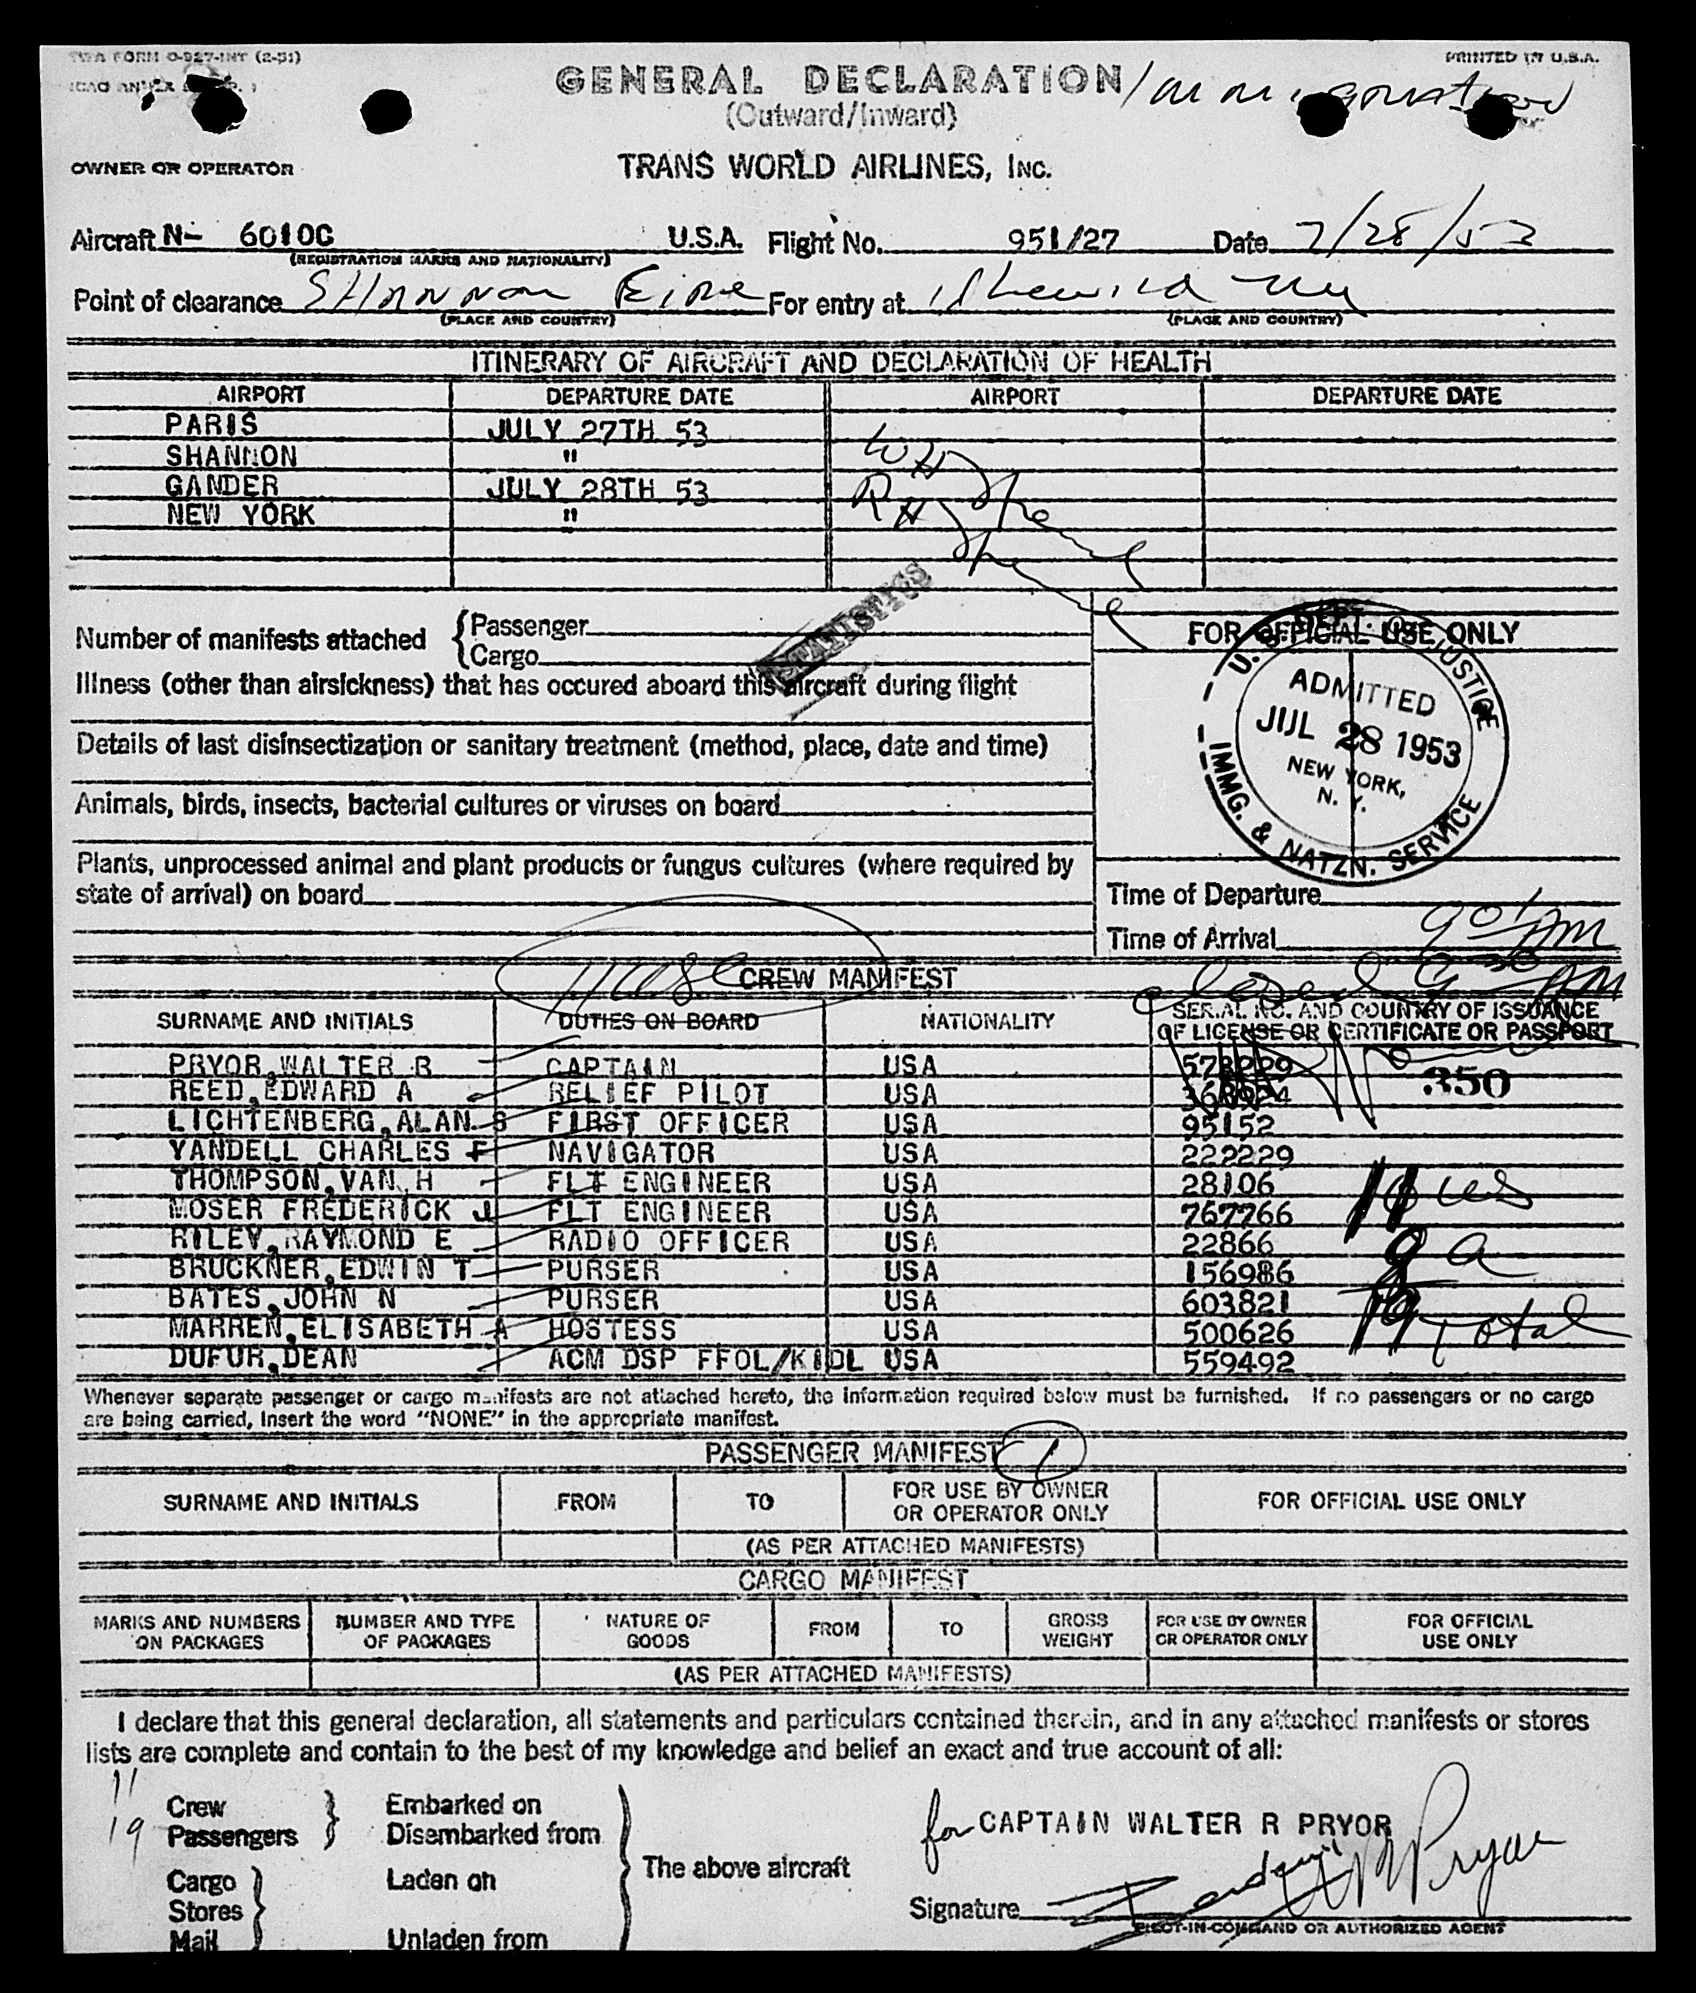 TWA FORM O-927-INT (2-51)
PRINTED IN U.S.A.
ICAO ANNEX
GENERAL DECLARATION
Immigration
(Outward/Inward)
OWNER OR OPERATOR
TRANS WORLD AIRLINES, INC.
Aircraft N- 6010C U.S.A. Flight No. 951/27 Date 7/28/53
(REGISTRATION MARKS AND NATIONALITY)
Point of clearance Shannon Eire For entry at Idlewild NY
(PLACE AND COUNTRY) (PLACE AND COUNTRY)
ITINERARY OF AIRCRAFT AND DECLARATION OF HEALTH
AIRPORT DEPARTURE DATE AIRPORT DEPARTURE DATE
PARIS JULY 27TH 53
SHANNON "
GANDER JULY 28TH 53
NEW YORK "
STATISTICS
Number of manifests attached { Passenger
Cargo
FOR OFFICIAL USE ONLY
Illness (other than airsickness) that has occured aboard this aircraft during flight
U. S. DEPT. OF JUSTICE
ADMITTED
JUL 28 1953
NEW YORK,
N. Y.
IMMG. & NATZN. SERVICE
Details of last disinsectization or sanitary treatment (method, place, date and time)
Animals, birds, insects, bacterial cultures or viruses on board
Plants, unprocessed animal and plant products or fungus cultures (where required by
state of arrival) on board
Time of Departure
Time of Arrival 901 PM
CREW MANIFEST
closed
SURNAME AND INITIALS DUTIES ON BOARD NATIONALITY SERIAL NO. AND COUNTRY OF ISSUANCE
OF LICENSE OR CERTIFICATE OR PASSPORT
PRYOR,WALTER R CAPTAIN USA
350
REED,EDWARD A RELIEF PILOT USA
LICHTENBERG,ALAN S FIRST OFFICER USA 95152
YANDELL CHARLES F NAVIGATOR USA 222229
THOMPSON,VAN H FLT ENGINEER USA 28106
MOSER FREDERICK J FLT ENGINEER USA 767766
RILEY,RAYMOND E RADIO OFFICER USA 22866
BRUCKNER,EDWIN T PURSER USA 156986
BATES,JOHN N PURSER USA 603821
MARREN,ELISABETH A HOSTESS USA 500626
Total
DUFUR,DEAN ACM DSP FFOL/KIDL USA 559492
Whenever separate passenger or cargo manifests are not attached hereto, the information required below must be furnished. If no passengers or no cargo
are being carried, insert the word "NONE" in the appropriate manifest.
PASSENGER MANIFEST 1
SURNAME AND INITIALS FROM TO FOR USE BY OWNER
OR OPERATOR ONLY FOR OFFICIAL USE ONLY
(AS PER ATTACHED MANIFESTS)
CARGO MANIFEST
MARKS AND NUMBERS
ON PACKAGES NUMBER AND TYPE
OF PACKAGES NATURE OF
GOODS FROM TO GROSS
WEIGHT FOR USE BY OWNER
OR OPERATOR ONLY FOR OFFICIAL
USE ONLY
(AS PER ATTACHED MANIFESTS)
I declare that this general declaration, all statements and particulars contained therein, and in any attached manifests or stores
lists are complete and contain to the best of my knowledge and belief an exact and true account of all:
11 Crew Embarked on
19 Passengers Disembarked from
for CAPTAIN WALTER R PRYOR
The above aircraft
Cargo Laden on
Stores
Signature W R Pryor
PILOT-IN-COMMAND OR AUTHORIZED AGENT
Mail Unladen from